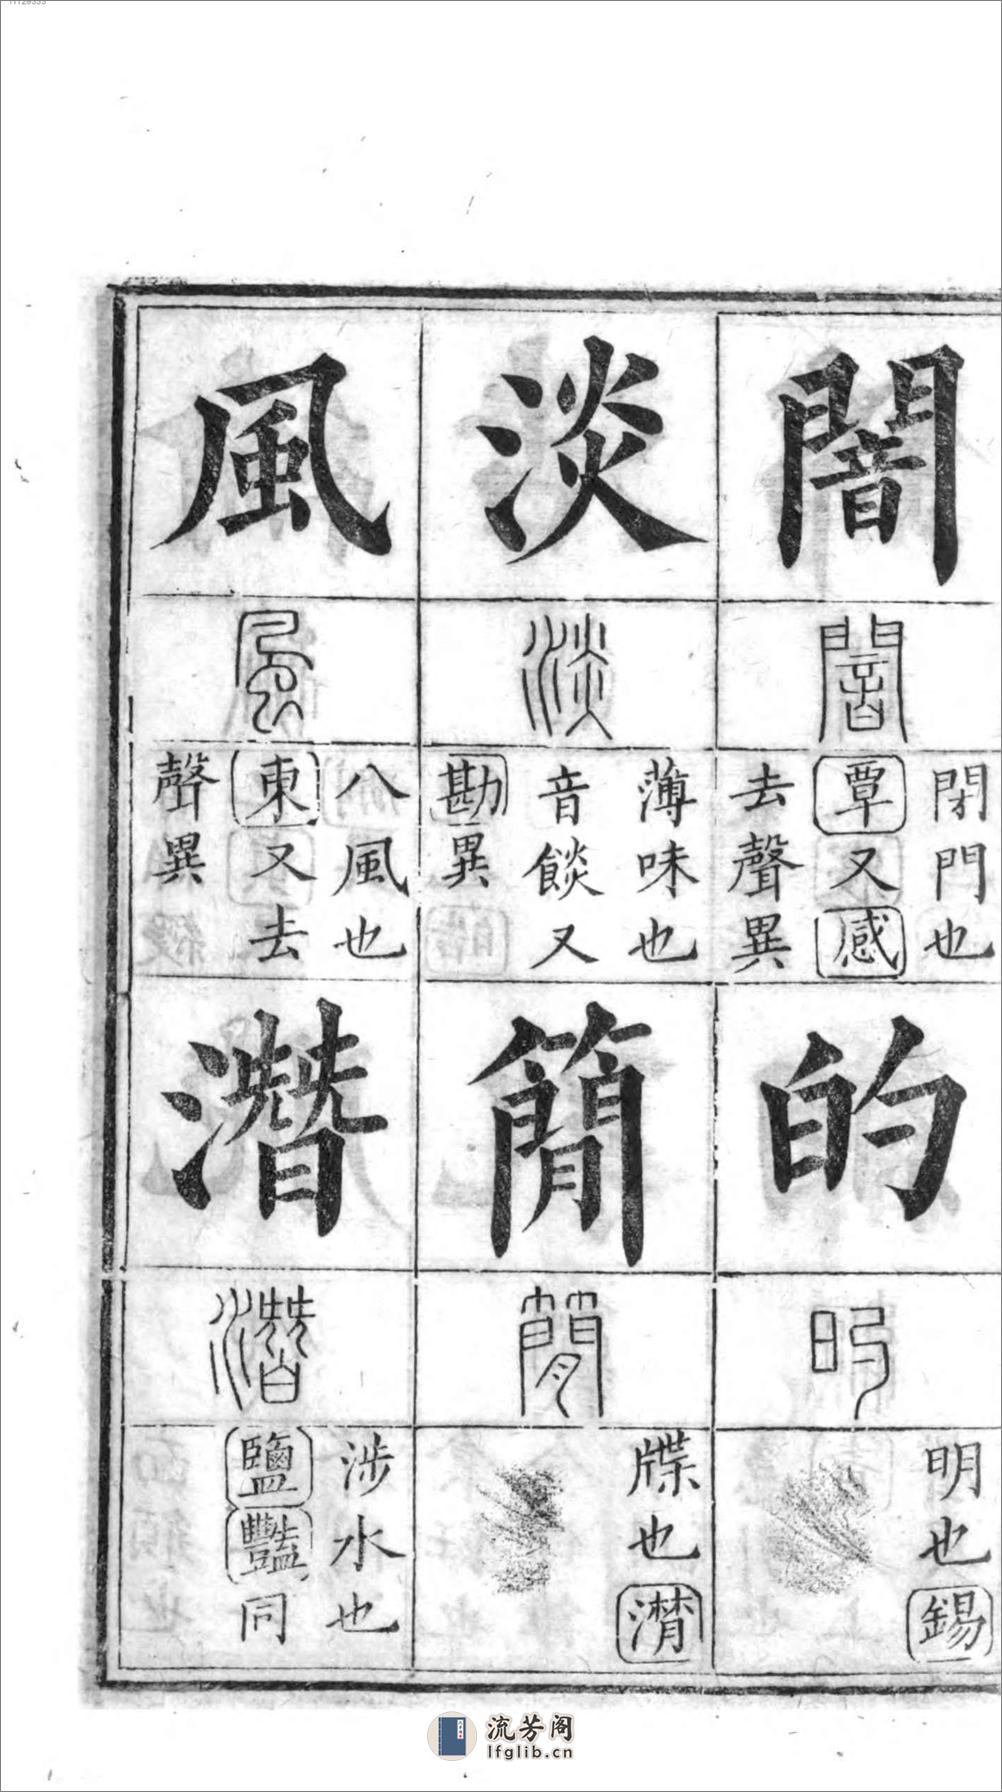 闇
闇
閉門也
覃又感
去聲異
的
的
明也錫
淡
淡
薄味也
音餤又
勘異
簡
簡
牒也潸
風
風
八風也
東又去
聲異
潛
潛
涉水也
鹽豔同
流芳阁
lfglib.cn